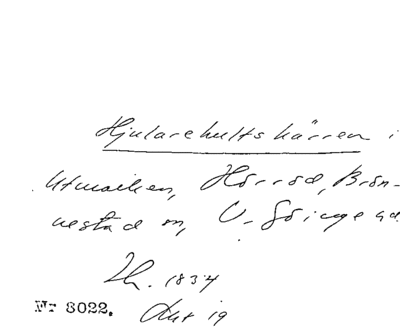 Hjularehultskärren i
Utmarken, Hörröd, Brön-
nestad sn, V. Göinge hd
Th. 1834
Nr 8022. Akt 19